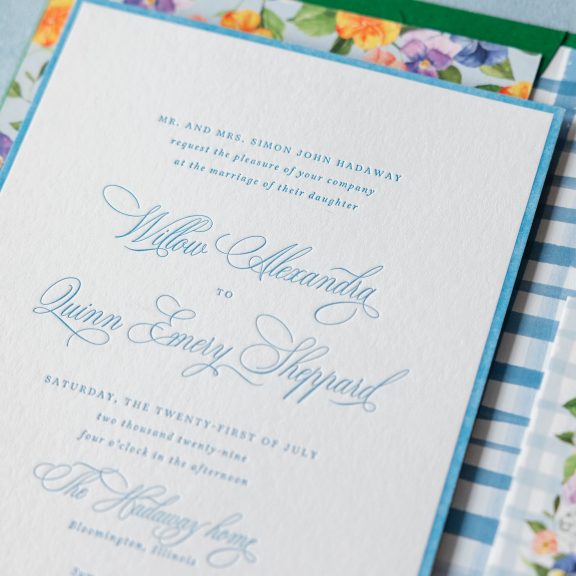 MR. AND MRS. SIMON JOHN HADAWAY
request the pleasure of your company
at the marriage of their daughter
Willow Alexandra
TO
Quinn Emery Sheppard
SATURDAY, THE TWENTY-FIRST OF JULY
two thousand twenty-nine
four o'clock in the afternoon
The Hadaway home
Bloomington, Illinois